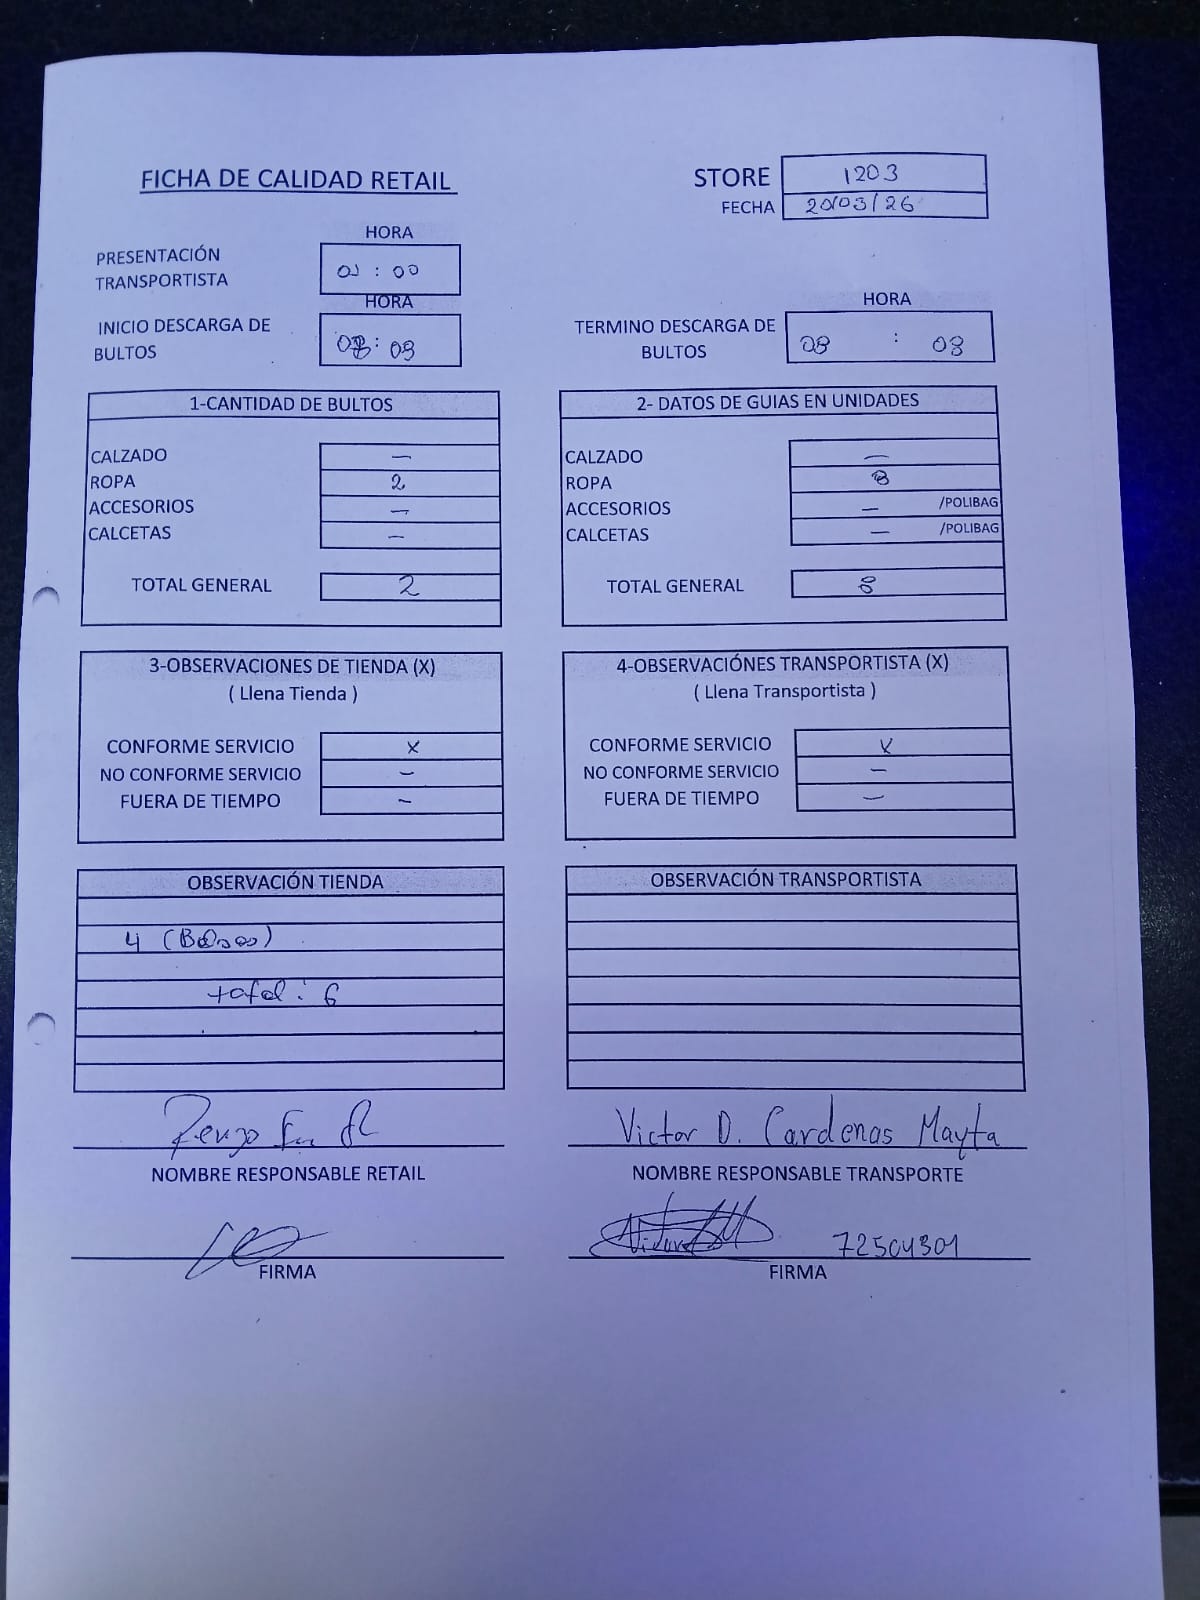 FICHA DE CALIDAD RETAIL
STORE 1203
FECHA 20/03/26
HORA
PRESENTACIÓN TRANSPORTISTA : 00
HORA
INICIO DESCARGA DE BULTOS : 09
HORA
TERMINO DESCARGA DE BULTOS 08 : 08
1-CANTIDAD DE BULTOS
CALZADO —
ROPA 2
ACCESORIOS —
CALCETAS —
TOTAL GENERAL 2
2- DATOS DE GUIAS EN UNIDADES
CALZADO —
ROPA 8
ACCESORIOS — /POLIBAG
CALCETAS — /POLIBAG
TOTAL GENERAL 8
3-OBSERVACIONES DE TIENDA (X)
( Llena Tienda )
CONFORME SERVICIO X
NO CONFORME SERVICIO —
FUERA DE TIEMPO —
4-OBSERVACIÓNES TRANSPORTISTA (X)
( Llena Transportista )
CONFORME SERVICIO X
NO CONFORME SERVICIO —
FUERA DE TIEMPO —
OBSERVACIÓN TIENDA
4
total : 6
OBSERVACIÓN TRANSPORTISTA
Renzo
NOMBRE RESPONSABLE RETAIL
FIRMA
Victor D. Cardenas Mayta
NOMBRE RESPONSABLE TRANSPORTE
72504301
FIRMA